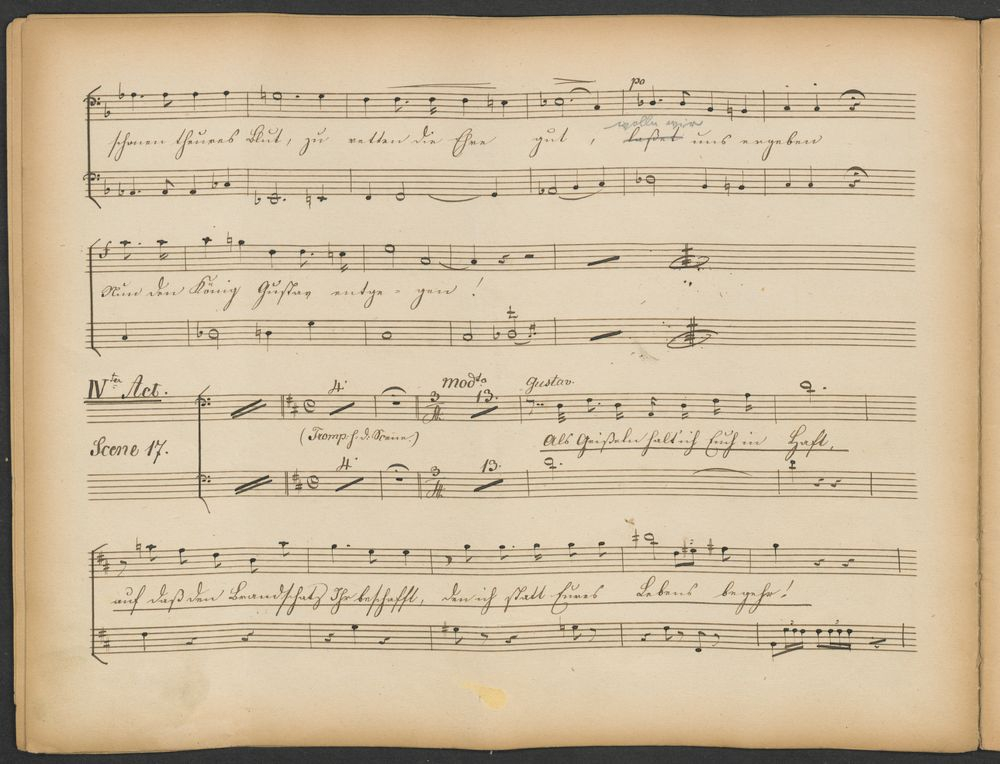 po
wollen wir
schonen theures Blut, zu retten die Ehre gut, laßet uns ergeben
Nun den König Gustav entge-gen!
IVter Act.
4. modto 13. Gustav.
(Tromp. h. d. Scene)
Scene 17.
Als Geißeln halt' ich Euch in Haft,
4. 13.
auf daß den Brandschatz Ihr beschafft, den ich statt Eures Lebens begehr!